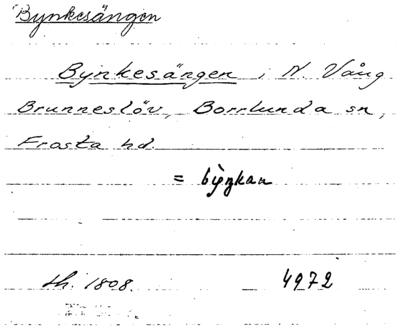 Bynkesängen
Bynkesängen i N. Vång
Brunneslöv, Borrlunda sn,
Frosta hd.
= by̆nkan
th. 1808. 4972